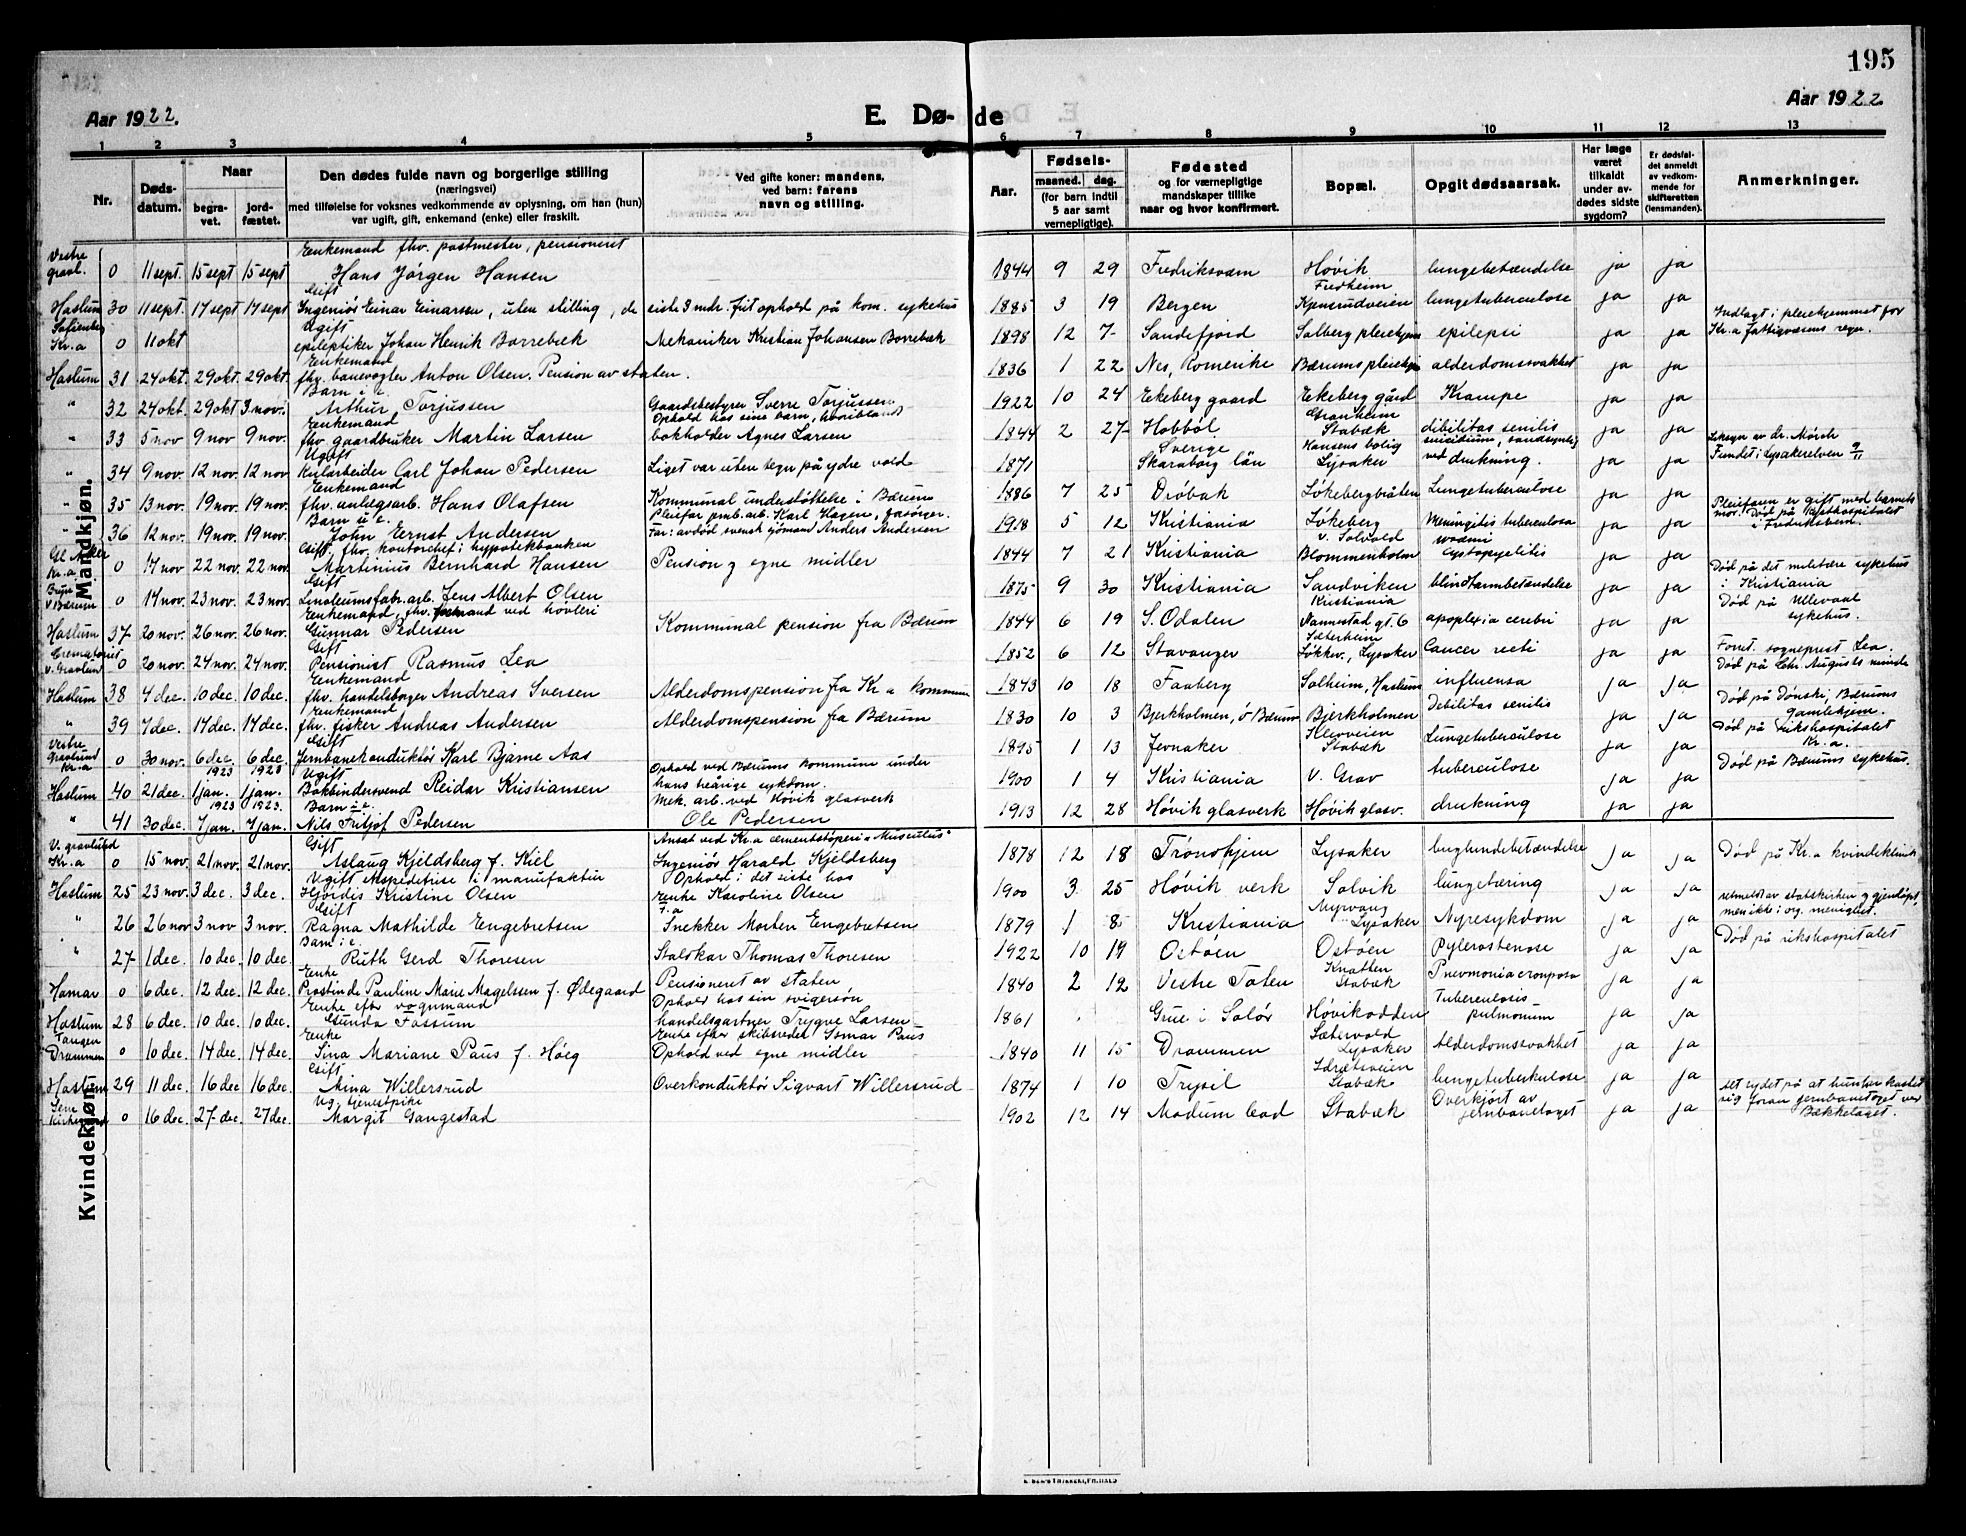 195
Aar 1922.
E. Dø-
de
Aar 1922
1 2 3 4 5 6 7 8 9 10 11 12 13
Nr.
Døds-
datum.
Naar
begra-
vet.
jord-
fæstet.
Den dødes fulde navn og borgerlige stilling
(næringsvei)
med tilføielse for voksnes vedkommende av oplysning, om han (hun)
var ugift, gift, enkemand (enke) eller fraskilt.
Ved gifte koner: mandens,
ved barn: farens
navn og stilling.
Aar.
Fødsels-
maaned. dag.
(for barn indtil
5 aar samt
vernepligtige).
Fødested
og for værnepligtige
mandskaper tillike
naar og hvor konfirmert.
Bopæl.
Opgit dødsaarsak.
Har læge
været
tilkaldt
under av-
dødes sidste
sygdom?
Er dødsfal-
det anmeldt
av vedkom-
mende for
skifteretten
(lensmanden).
Anmerkninger.
Mandkjøn.
Enkemand fhv. postmester, pensioneret
Vestre gravl. 0 11 sept. 15 sept 15 sept Hans Jörgen Hansen 1844 9 29 Fredriksværn Høvik lungebetændelse ja ja
Gift Fredheim
Haslum 30 11 sept. 17 sept 17 sept Ingeniör Einar Einarsen, uten stilling, de sidste 3 mdr. frit ophold på kom. sykehus 1885 3 19 Bergen lungetuberculose ja ja
Ugift
Kr.a 0 11 okt epileptiker Johan Henrik Borrebæk Mekaniker Kristian Johansen Borrebæk 1898 12 7 Sandefjord Solberg pleiehjem epilepsi ja ja Indlagt i pleiehjemmet for Kr.a fattigvæsens regn.
Enkemand
Haslum 31 24 okt. 29 okt. 29 okt. fhv. banevogter Anton Olsen. Pension av staten. 1836 1 22 Nes, Romerike Bærums pleiehjem alderdomssvakhet ja ja
Barn i e.
" 32 24 okt. 29 okt 3 nov. Arthur Torjussen Gaardsbestyrer Sverre Torjussen 1922 10 24 Ekeberg gaard Ekeberg gård Krampe ja ja
Enkemand Ophold hos sine barn, hvoriblandt Granheim
" 33 5 nov 9 nov 9 nov. fhv. gaardbruker Martin Larsen bokholder Agnes Larsen 1844 2 27 Hobböl Stabæk dibilitas senilis ja ja
Ugift Sverige Hansens bolig suicidium, sandsynlig
" 34 9 nov. 12 nov. 12 nov Carl Johan Pedersen Liget var uten tegn på ydre vold 1871 Skaraborg län Lysaker ved drukning. ja ja Liksyn av dr. Mörch Fundet i Lysakerelven 9/11
Enkemand
" 35 13 nov. 19 nov. 19 nov. fhv. anlegsarb. Hans Olafsen Kommunal understöttelse i Bærum 1886 7 25 Dröbak Løkebergbråten Lungetuberculose ja ja
Barn u. e. Pleiefar pmb. arb. Karl Hagen, forsörger.
" 36 12 nov. 19 nov. 19 nov. John Ernst Andersen Far: avdöd svensk sjömand Anders Andersen 1918 5 12 Kristiania Løkeberg Meningitis tuberculosa ja ja Pleiefaren er gift med barnets mor. Död på
Gift, fhv. kontorchef i hypotekbanken
Gl. Aker Kr.a 0 17 nov 22 nov. 22 nov. Martinius Bernhard Hansen Pension og egne midler 1844 7 21 Kristiania Blommenholm cystopyelitis ja ja
Gift
0 14 nov. 23 nov. 23 nov. Linoleumsfabr.arb. Jens Albert Olsen 1875 9 30 Kristiania Sandviken blindtarmbetændelse ja ja Död på det militære sykehus i Kristiania
Enkemand, fhv. formand ved hövleri Kristiania
Haslum 37 20 nov. 26 nov. 26 nov. Gunnar Pedersen Kommunal pension fra Bærum 1844 6 19 S. Odalen apoplexia cerebri ja ja Död på Ullevaal sykehus.
Gift
Crematoriet v. Gravlund 0 20 nov. 24 nov. 24 nov. Pensionist Rasmus Lea 1852 6 12 Stavanger Lysaker Cancer recti ja ja Foret. sogneprest Lea.
Enkemand
Haslum 38 4 dec. 10 dec. 10 dec. fhv. handelsborger Andreas Iversen Alderdomspension fra Kr.a kommune 1843 10 18 Faaberg Solheim, Haslum influensa ja ja Död på Chr. Augusts minde
Enkemand
" 39 7 dec. 17 dec. 17 dec. fhv. fisker Andreas Andersen Alderdomspension fra Bærum 1830 10 3 Bjerkholmen, ö Bærum Bjerkholmen Debilitas senilis ja ja Död på Dönski, Bærums gamlehjem.
Gift Kleivveien
Vestre Gravlund Kr.a 0 30 nov. 6 dec. 6 dec. Jernbanekonduktör Karl Bjarne Aas 1895 1 13 Jevnaker Stabæk Lungetuberculose ja ja Död på Rikshospitalet Kr.a.
1923 1923 Ugift Ophold ved Bærums kommune under
Haslum 40 21 dec. 1 jan. 1 jan. Bokbindersvend Reidar Kristiansen hans treårige sykdom. 1900 1 4 Kristiania V. Grav tuberculose ja ja Död på Bærums sykehus.
1923 1923. Barn i e. Mek. arb. ved Hövik glasverk
" 41 30 dec. 7 jan. 7 jan. Nils Fritjof Pedersen Ole Pedersen 1913 12 28 Hövik glasverk Hövik glasv. drukning ja ja
Kvindekjøn.
Gift Ansat ved Kr.a cementstöperi "Musculus"
V. gravlund Kr.a 0 15 nov. 21 nov. 21 nov. Aslaug Kjeldsberg f. Kiel Ingeniör Harald Kjeldsberg 1878 12 18 Trondhjem Lysaker bughindebetændelse ja ja Död på Kr.a kvindeklinik
Ugift ekspeditrise i manufaktur Ophold i det siste hos
Haslum 25 23 nov. 3 dec. 3 dec. Hjördis Kristine Olsen enke Karoline Olsen 1900 3 25 Hövik verk Solvik lungetæring ja ja utmeldt av statskirken og gjendöpt, men ikke i
Gift F. a
" 26 26 nov 3 nov 3 nov. Ragna Mathilde Engebretsen Snekker Morten Engebretsen 1879 1 8 Kristiania Lysaker Nyresykdom ja ja
Barn i e.
" 27 1 dec. 10 dec. 10 dec. Ruth Gerd Thoresen Stalskar Thomas Thoresen 1922 10 19 Ostöen Ostöen Pylerostenose ja ja Död på rikshospitalet
Enke Pensionert av staten Knatten
Hamar 0 6 dec. 12 dec. 12 dec. Prostinde Pauline Marie Magelssen f. Ødegaard 1840 2 12 Vestre Toten Stabæk Pnevmonia crouposa ja ja
Enke efter vognmand Ophold hos sin svigersön
Haslum 28 6 dec. 10 dec. 10 dec. Gunda Fossum handelsgartner Trygve Larsen 1861 Grue i Solör Hövikodden Tuberculosis pulmonum ja ja
Enke Enke efter skibsreder Ismar Paus Sætervold
Tangen Drammen 0 10 dec. 14 dec. 14 dec. Sina Mariane Paus f. Höeg Ophold ved egne midler 1840 11 15 Drammen Lysaker Alderdomssvakhet ja ja
Gift Idrætsveien
Haslum 29 11 dec. 16 dec. 16 dec. Mina Willersrud Overkonduktör Sigvart Willersrud 1874 1 10 Trysil Stabæk lungetuberkulose ja ja
Ug. tjenestpike
0 16 dec. 27 dec. 27 dec. Margit Gangestad 1902 12 14 Modum bad Stabæk Overkjört av jernbanetoget ja ja det tydet på at hun har kastet sig foran jernbanetoget ved Bækkelaget.